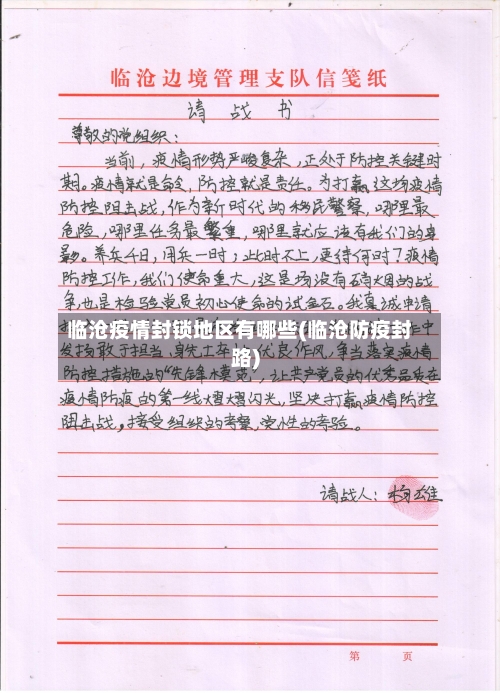 临沧边境管理支队信笺纸
请战书
尊敬的党组织：
当前，疫情形势严峻复杂，正处于防控关键时
期。疫情就是命令，防控就是责任。为打赢这场疫情
防控阻击战，作为新时代的移民警察，哪里最
危险，哪里任务最繁重，哪里就应该有我们的身
影。养兵千日，用兵一时；此时不上，更待何时？疫情
防控工作，我们使命重大，这是场没有硝烟的战
争，也是检验党员初心使命的试金石。我真诚申请
临沧疫情封锁地区有哪些(临沧防疫封
路)
中
发扬敢于担当、身先士卒的优良作风，争当落实疫情
防控措施的“先锋模范”，让共产党员的优秀品质在
疫情防疫的第一线熠熠闪光，坚决打赢疫情防控
阻击战，接受组织的考察，党性的考验。
请战人：杨雄
第 页